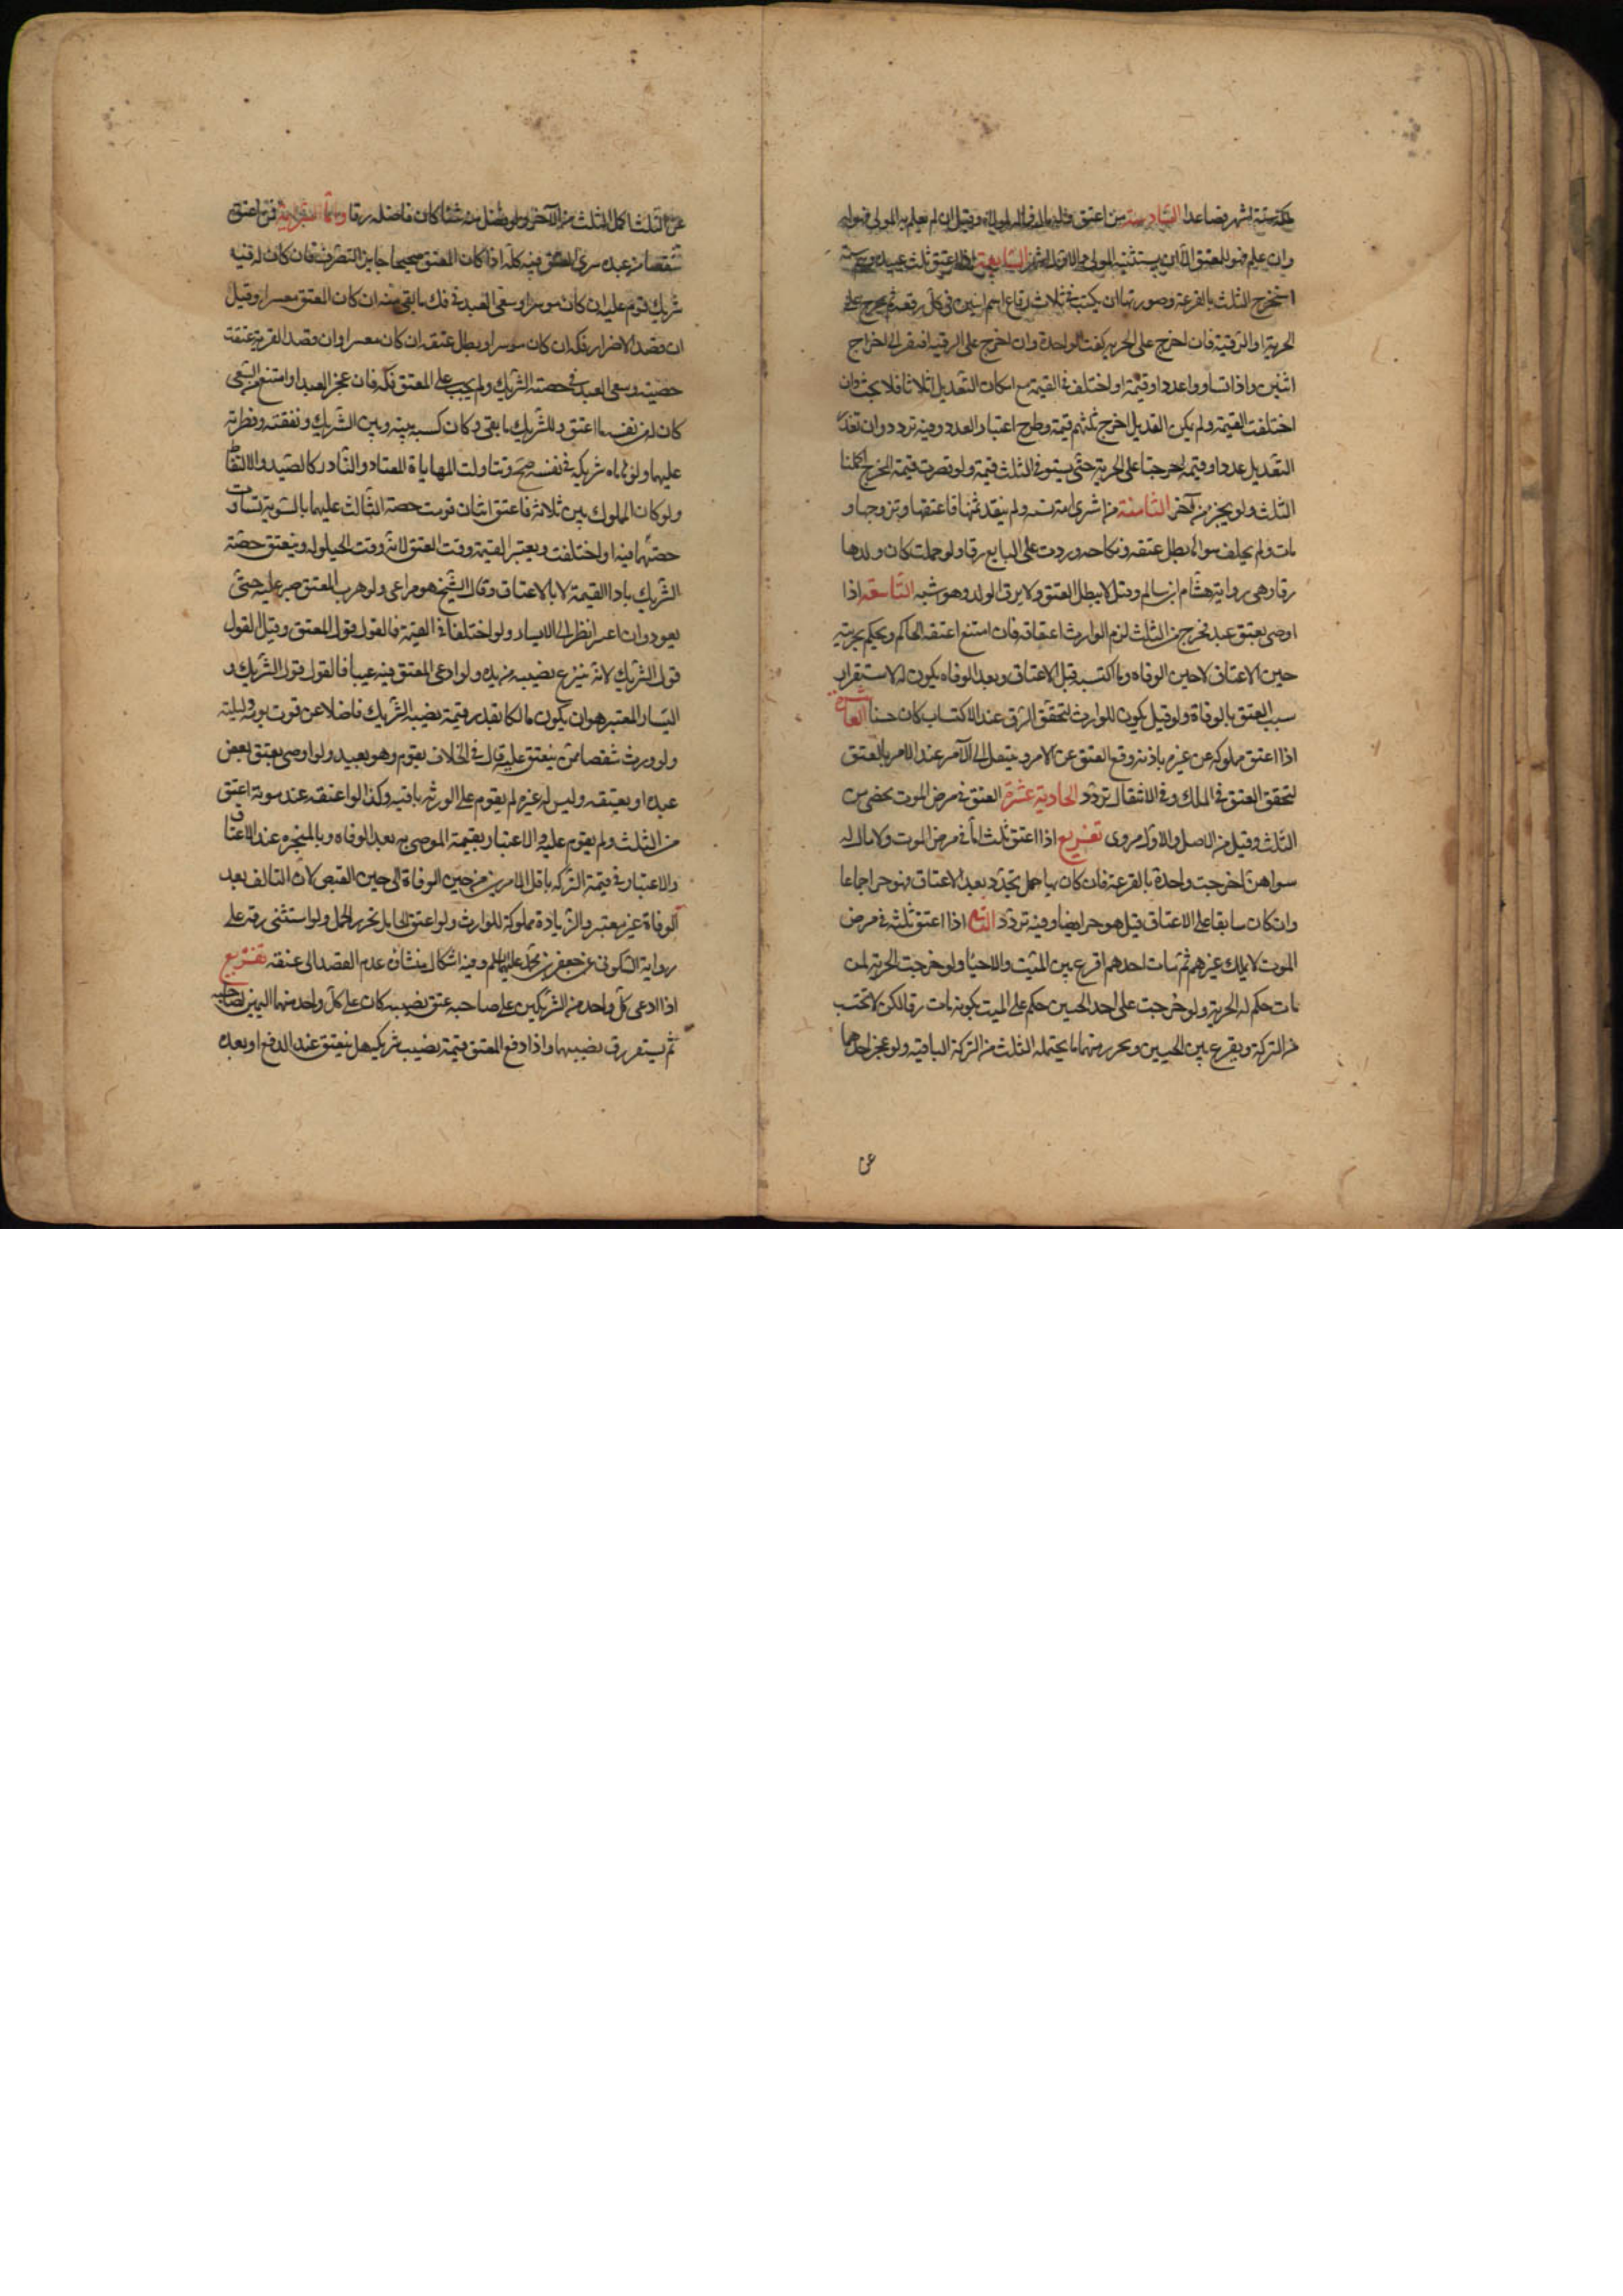 ملكه ستة اشهر فصاعدا السادسة من اعتق وله مال فماله لمولاه وقيل ان لم يعلم به المولى فهو له
وان علم فهو للمعتق الا ان يستثنيه المولى والاول اشهر السابعة اذا اعتق ثلث عبيده وهم ستة
استخرج الثلث بالقرعة وصورتها ان يكتب في ثلاث رقاع اسم اثنين في كل رقعه ثم يخرج على
الحرية او الرقية فان اخرج على الحرية كفت الواحدة وان اخرج على الرقية افتقر الى اخراج
اثنين واذا تساووا عددا وقيمة او اختلفت القيمة مع امكان التعديل اثلاثا فلا بحث وان
اختلفت القيمة ولم يكن التعديل اخرج ثلثهم قيمة وطرح اعتبار العدد وفيه تردد وان تعذر
التعديل عددا وقيمة اخرجنا على الحرية حتى يستوفي الثلث قيمة ولو قصرت قيمة المخرج اكملنا
الثلث ولو بجزء من آخر الثامنة من اشترى امة نسية ولم ينقد ثمنها فاعتقها وتزوجها و
مات ولم يخلف سواها بطل عتقه ونكاحه وردت على البايع رقا ولو حملت كان ولدها
رقا وهي رواية هشام بن سالم وقيل لا يبطل العتق ولا يرق الولد وهو شبه التاسعة اذا
اوصى بعتق عبد فخرج من الثلث لزم الوارث اعتاقه فان امتنع اعتقه الحاكم ويحكم بحريته
حين الاعتاق لا حين الوفاه وما اكتسبه قبل الاعتاق وبعد الوفاه يكون له لاستقرار
سبب العتق بالوفاة ولو قيل يكون للوارث لتحقق الرق عند الاكتساب كان حسنا العاشرة
اذا اعتق مملوكه عن غيره باذنه وقع العتق عن الامر وينتقل الى الآمر عند الامر بالعتق
لتحقق العتق في الملك وفي الانتقال تردد الحادية عشرة العتق في مرض الموت يمضي من
الثلث وقيل من الاصل والاول مروى تفريع اذا اعتق ثلث اماً في مرض الموت ولا مال له
سواهن اخرجت واحدة بالقرعة فان كان بها حمل تجدد بعد الاعتاق فهو حر اجماعا
وان كان سابقا على الاعتاق قيل هو حر ايضا وفيه تردد اذا اعتق ثلثه في مرض
الموت لا يملك غيرهم ثم مات احدهم اقرع بين الميت والاحيا ولو خرجت الحرية لمن
مات حكم له بالحرية ولو خرجت على احد الحيين حكم على الميت بكونه مات رقا لكن لا تحتسب
من التركة ويقرع بين الحيين ويحرر منهما ما يحتمله الثلث من التركة الباقية ولو عجز احدهما
عن
عن الثلث اكمل الثلث من الآخر ولو فضل منه شئ كان فاضله رقا واما السراية فمن اعتق
شقصا من عبده سرى العتق فيه كله اذا كان المعتق صحيحا جايز التصرف فان كان له فيه
شريك قوم عليه ان كان موسرا وسعى العبد في فك ما بقي منه ان كان المعتق معسرا وقيل
ان قصد الاضرار فكه ان كان موسرا وبطل عتقه ان كان معسرا وان قصد القربة عتقت
حصته وسعى العبد في حصة الشريك ولم يجب على المعتق فكه فان عجز العبد او امتنع من السعى
كان له من نفسه ما اعتق وللشريك ما بقي وكان كسبه بينه وبين الشريك ونفقته وفطرته
عليهما ولو هاياه شريكه في نفسه صح وتناولت المهاياة المعتاد والنادر كالصيد والالتقاط
ولو كان المملوك بين ثلاثة فاعتق اثنان قومت حصة الثالث عليهما بالسوية تساوت
حصتهما فيه او اختلفت ويعتبر القيمة وقت العتق لانه وقت الحيلوله وينعتق حصة
الشريك باداء القيمة لا بالاعتاق وقال الشيخ هو مراعى ولو هرب المعتق صبر عليه حتى
يعود وان اعسر انظر الى الايسار ولو اختلفا في القيمة فالقول قول المعتق وقيل القول
قول الشريك لانه ينزع نصيبه من يده ولو ادعى المعتق فيه عيبا فالقول قول الشريك و
اليسار المعتبر هو ان يكون مالكا بقدر قيمة نصيب الشريك فاضلا عن قوت يومه وليلته
ولو ورث شقصا ممن ينعتق عليه قال في الخلاف يقوم وهو بعيد ولو اوصى بعتق بعض
عبده او بعتقه وليس له غيره لم يقوم على الورثه باقيه وكذا لو اعتقه عند موته اعتق
من الثلث ولم يقوم عليه والاعتبار بقيمة الموصى به بعد الوفاه وبالمنجزه عند الاعتاق
والاعتبار في قيمة التركه باقل الامرين من حين الوفاة الى حين القبض لان التالف بعد
الوفاة غير معتبر والزيادة مملوكة للوارث ولو اعتق الحامل تحرر الحمل ولو استثنى رقه على
رواية السكونى عن جعفر بن محمد عليهما السلم وفيه اشكال منشاؤه عدم القصد الى عتقه تفريع
اذا ادعى كل واحد من الشريكين على صاحبه عتق نصيبه كان على كل واحد منهما اليمين لصاحبه
ثم يستقر رق نصيبهما واذا دفع المعتق قيمة نصيب شريكه هل ينعتق عند الدفع او بعده